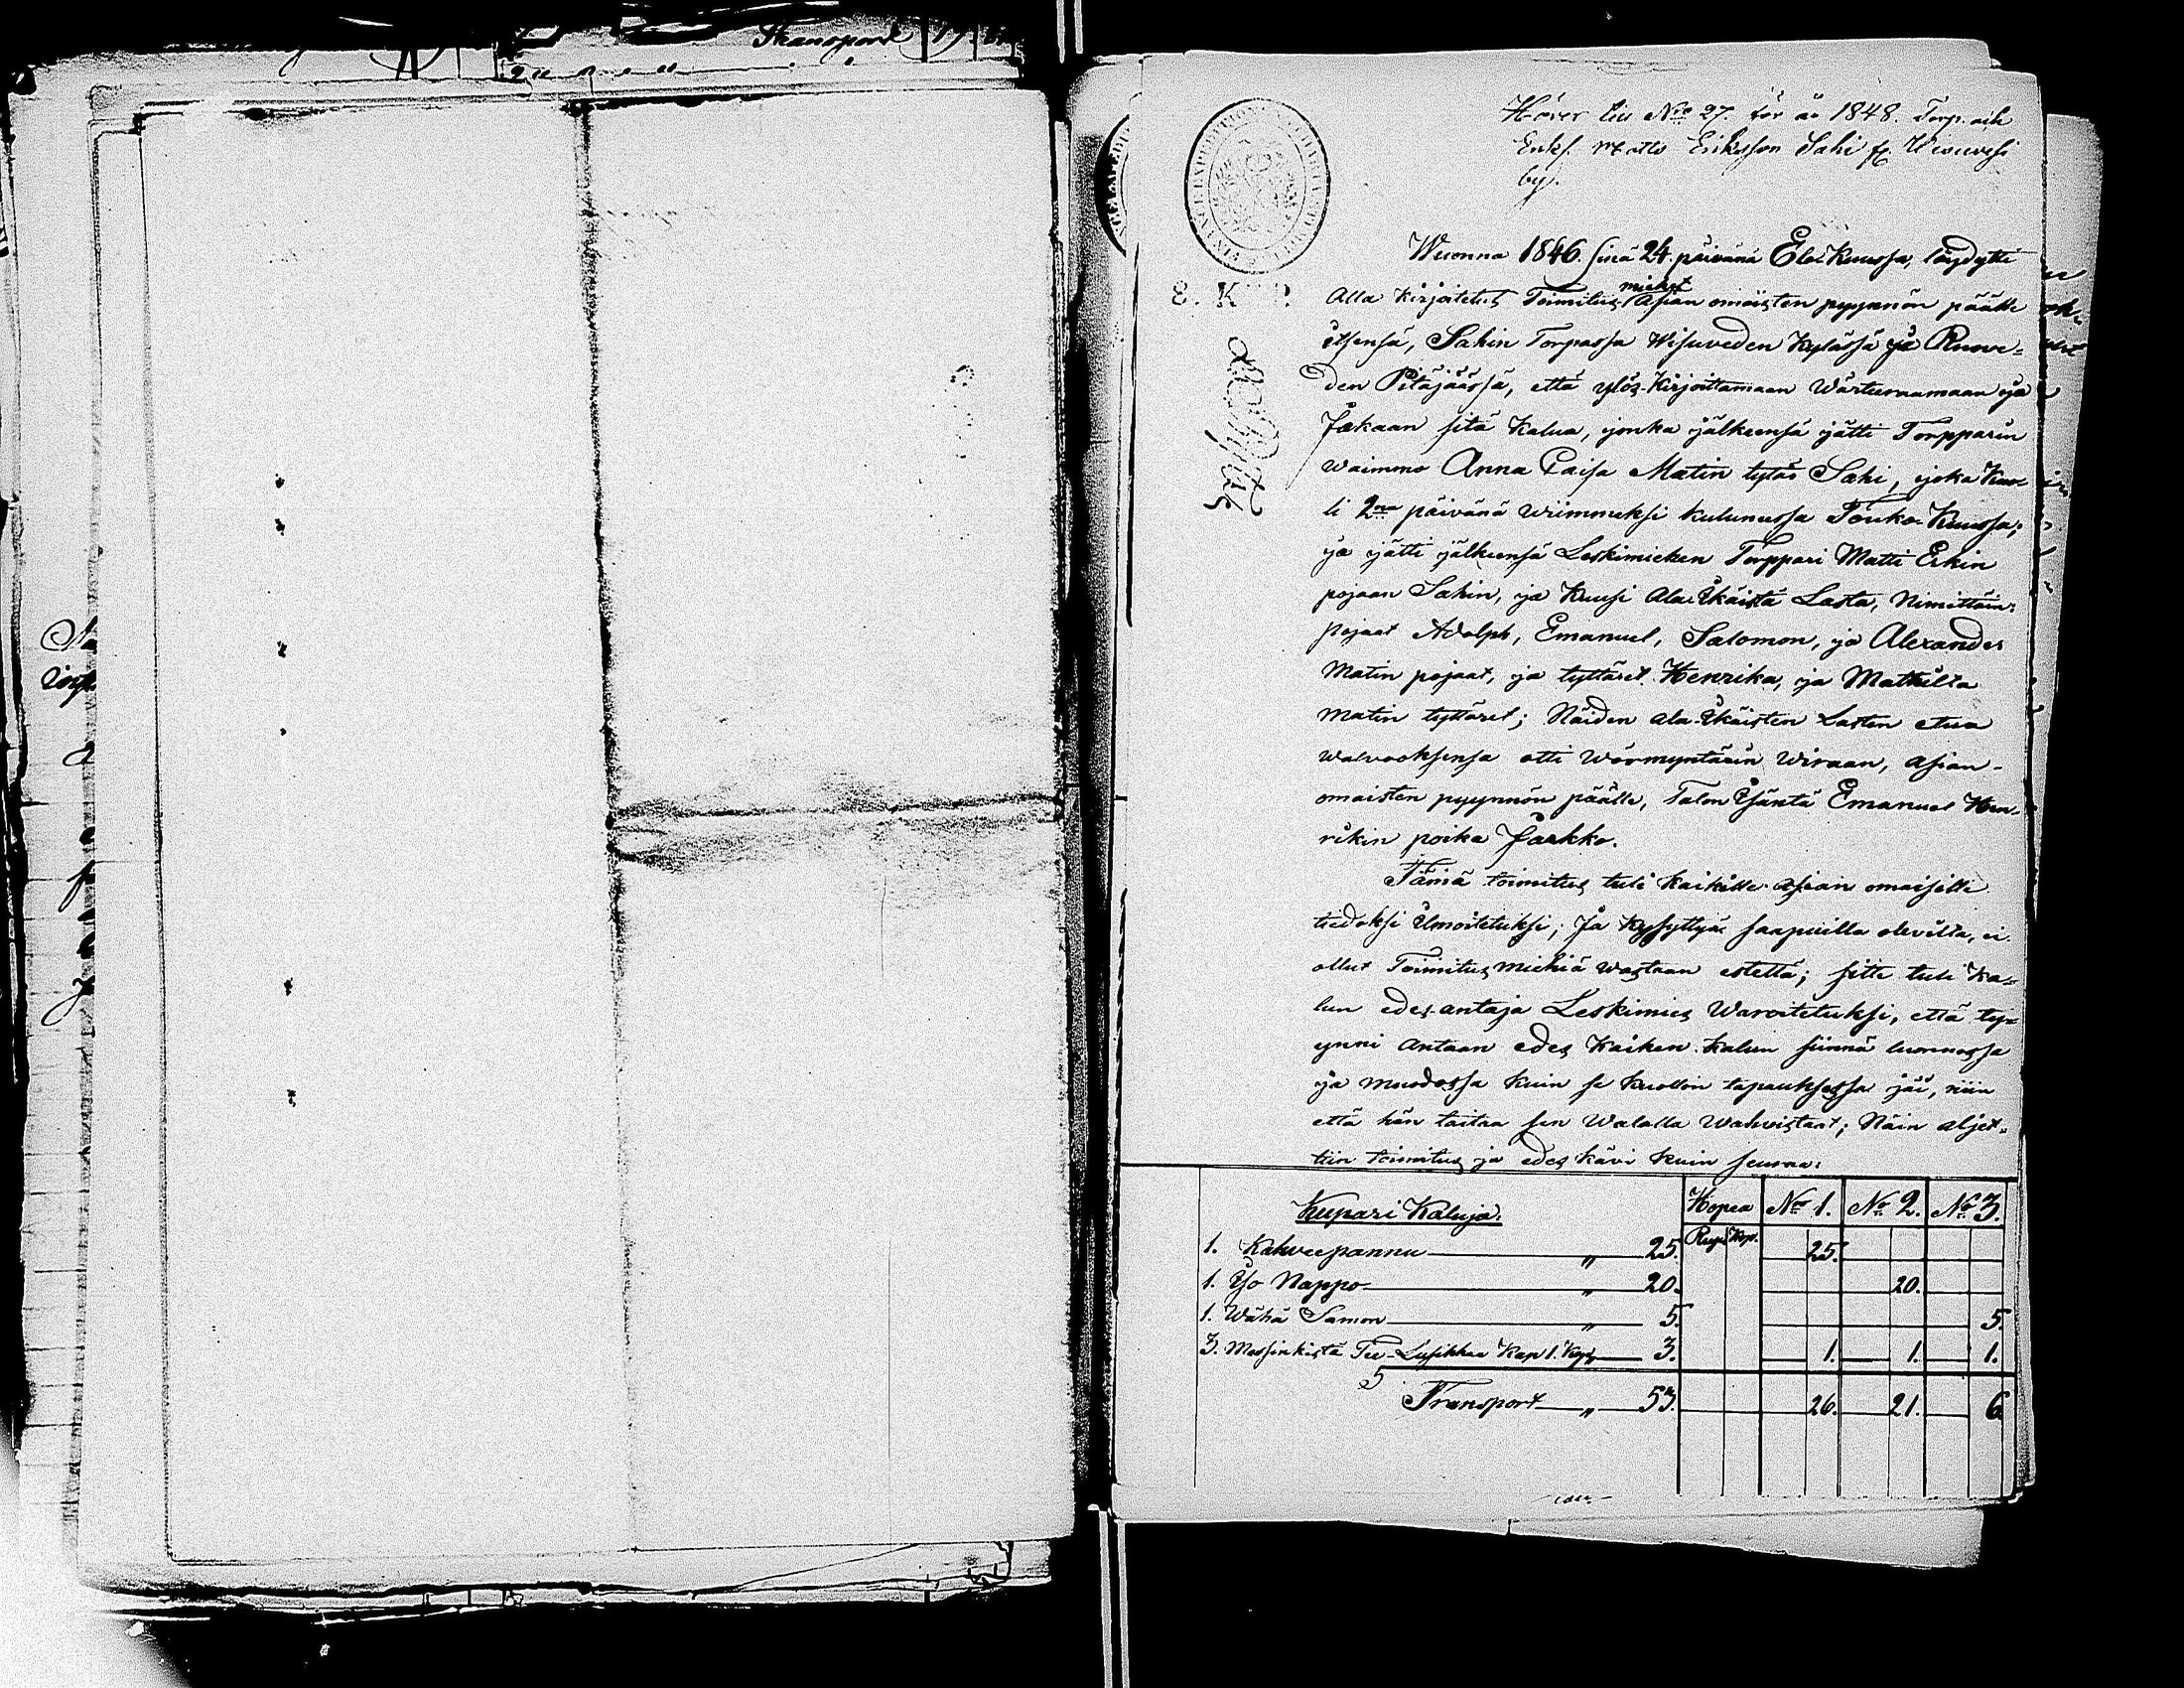 Transport 17
Hörer till No 27. för år 1848. Torp. enk
Enkl. Matts Eriksson Sahi fr. Wisuvesi
by.
Wuonna 1846. sinä 24. päivänä Elo-Kuussa, löydytti
8. K
Alla kirjoitetut Toimitus miehet Asian omaisten pyynnön päälle
itsensä, Sahin Torpassa Wisuveden Kylässä ja Ruove-
den Pitäjäässä, että ylös-kirjoittamaan Wärteeraamaan ja
Jakaan sitä kalua, jonka jälkeensä jätti Torpparin
waimmo Anna Caisa Matin tytär Sahi, joka Kuo-
li 2na päivänä wiimmeksi kulunussa Touko-Kuussa;
ja jätti jälkeensä Leskimiehen Torppari Matti Erkin
pojaan Sahin, ja Kuusi Ala-Ikäistä Lasta, Nimittäin:
pojaat Adolph, Emanuel, Salomon, ja Alexander
Matin pojaat, ja tyttäret Henrika, ja Mathilta
Matin tyttäret; Näiden ala-Ikäisten Lasten etua
walvooksensa otti Wörmyntärin Wiraan, Asian-
omaisten pyynnön päälle, Talon Isäntä Emanuel Hen-
rikin poika Jaakko.
Tämä toimitus tuli kaikille asian omaisille
tiedoksi Ilmoitetuksi; Ja kysyttyä saapuilla olevilta, ei
ollut Toimitus miehiä wastaan estettä; sitte tuli Ka-
lun edes-antaja Leskimies Waroitetuksi, että ty-
ynni Antaan edes Kaiken kalun siinnä luonnossa
ja muodossa kuin se kuollon tapauksessa jäi, niin
että hän taitaa sen Walalla Wahvistaat; Näin aljet-
tiin toimitus ja edes kävi kuin seuraa:
Kupari Kaluja. Hopea No 1. No 2. No 3.
Rup. Kop.
1. Kahveepannu " 25. 25.
1. Iso Nappo " 20. 20.
1. Wähä Samon " 5. 5.
3. Messinkistä Tee-Lusikkaa Kap 1. Kop " 3. 1. 1. 1.
Transport " 53. 26. 21. 6.